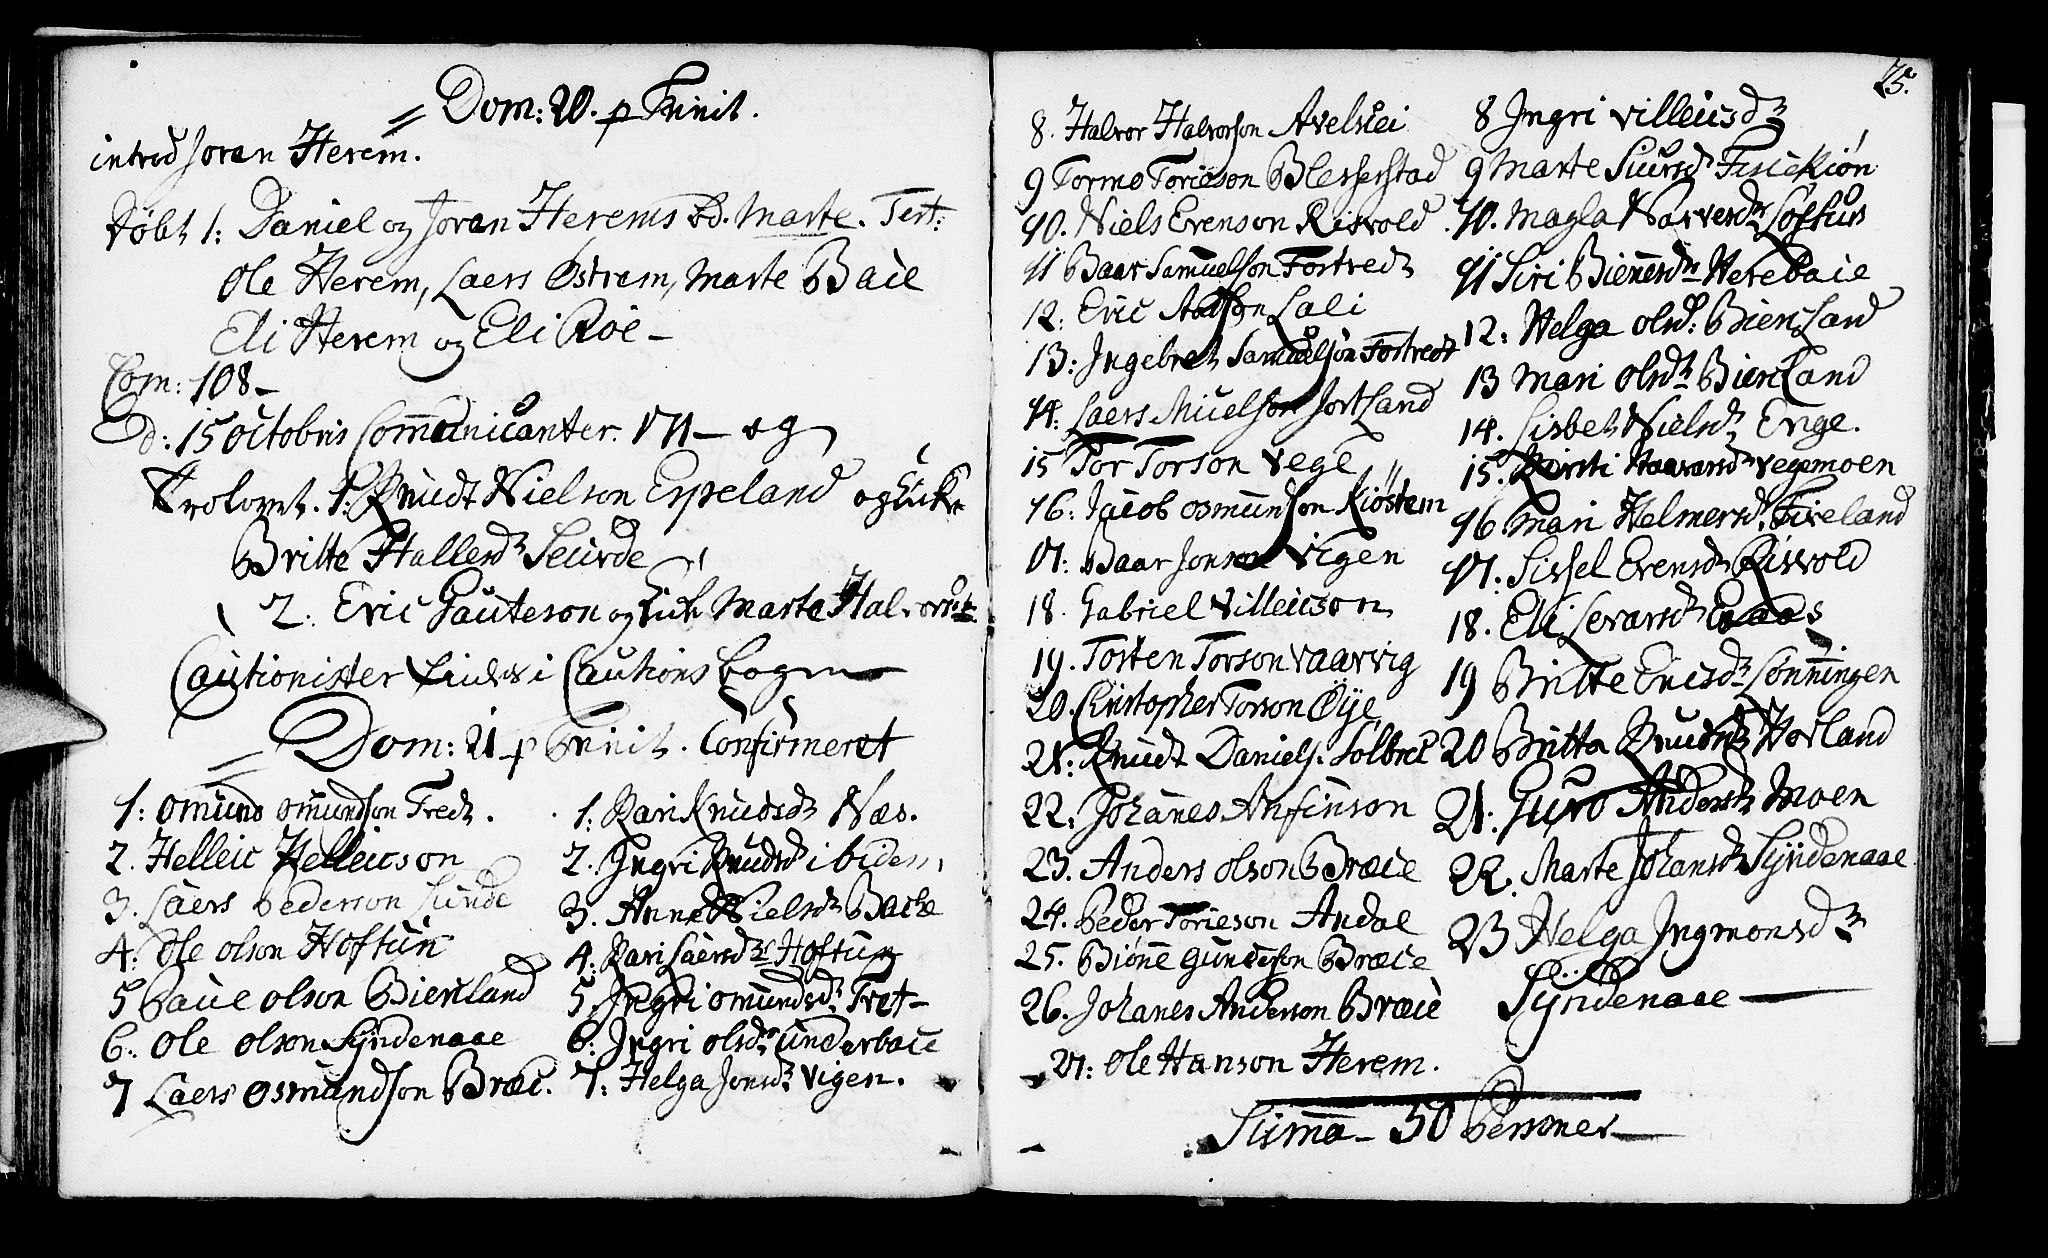 = Dom: 20. p Trinit.
introd Joran Herem.
Døbt 1: Daniel og Joran Herems bd. Marte. Test:
Ole Herem, Laers Østrem, Marte Bace
Eli Herem og Eli Roe -
Com: 108 -
D: 15 Octobris Communicanter. 171 - og
Trolovet. 1. Knudt Nielson Espeland og
Britte Hallersd Seurde
2. Eric Gauteson og Marta Halvorsd.
Cautionister i Cautions bogen
= Dom: 21 p Trinit. Confirmeret
1: Omund Omundson Tredt.
2. Helleic Helleicson
3. Laers Pederson Lunde
4: Ole Olson Hoftun
5 Paue Olson Biercland
6. Ole Olson Syndenaae
7 Laers Osmundson Bræc.
1: Kari Knudsdt Næs.
2. Ingri Knudsdt ibidem
3. Anne Nielsdt Backe
4. Kari Laersdt Hoftun
5. Ingri Omundsdt. Tret -
6. Ingri Olsdt. Underbace
7: Helga Jonsdt Vigen.
75.
8. Halvor Halvorson Avelsvei
9 Tormo Torieson Blesserstad
10. Niels Evenson Risvold
11 Baar Samuelson Fostvedt
12: Eric Lali
13: Ingebret Samuelson Fostvedt
14. Laers Muelson Jortland
15 Tor Torson Vege
16: Jacob Osmundson Kiøstem
17: Baar Jonson Vigen
18. Gabriel Villeicson
19. Tosten Torson Vaarvig
20. Christopher Torson Øye
21: Knudt Daniels. Solbrec
22. Johanes Anfinson
23. Anders Olson Bræce
24. Peder Torieson Andal
25. Biøne Gunderson Bræce
26. Johanes Anderson Bræce
27: Ole Hanson Herem.
8 Ingri Villeicsdt
9 Marte Siursdt Fisickiøn
10. Magla Narvesdt Løffus
11 Siri Bienersdt Herebace
12: Helga Olsd: Biercland
13 Mari Olsdt Biercland
14. Lisbet Nielsdt. Enge.
15. Kirsti Haavarsdt Vegemoen
16 Mari Helmersdt. Fireland
17. Sissel Evensdt Risvold
18. Eli Sevarsdt Eaaes
19 Britte Ericsdt Sønningen
20 Britta Knudsdt Horland
21. Guro Andersdt Moen
22. Marte Johansdt Syndenaae
23 Helga Ingmonsdt
Syndenaae
Summa - 50 Personer